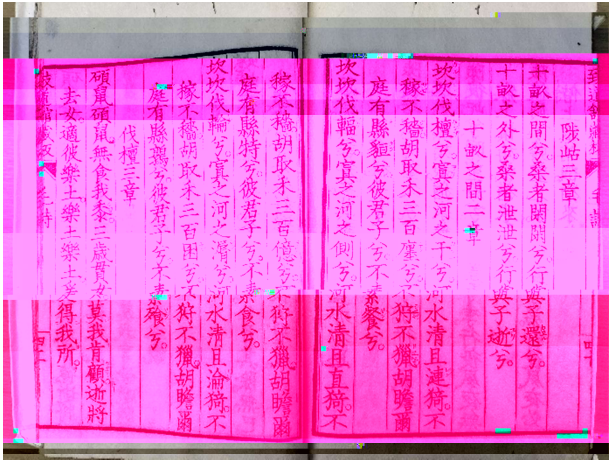 陟岵三章
十畝之間兮。桑者閑閑兮。行與子還兮。
十畝之外兮。桑者泄泄兮。行與子逝兮。
十畝之間二章
坎坎伐檀兮。寘之河之干兮。河水清且漣猗。不
稼不穡。胡取禾三百廛兮。不狩不獵。胡瞻爾
庭有縣貆兮。彼君子兮。不素餐兮。
坎坎伐輻兮。寘之河之側兮。河水清且直猗。不
稼不穡。胡取禾三百億兮。不狩不獵。胡瞻爾
庭有縣特兮。彼君子兮。不素食兮。
坎坎伐輪兮。寘之河之漘兮。河水清且淪猗。不
稼不穡。胡取禾三百囷兮。不狩不獵。胡瞻爾
庭有縣鶉兮。彼君子兮。不素飧兮。
伐檀三章
碩鼠碩鼠。無食我黍。三歲貫女。莫我肯顧。逝將
去女。適彼樂土。樂土樂土。爰得我所。